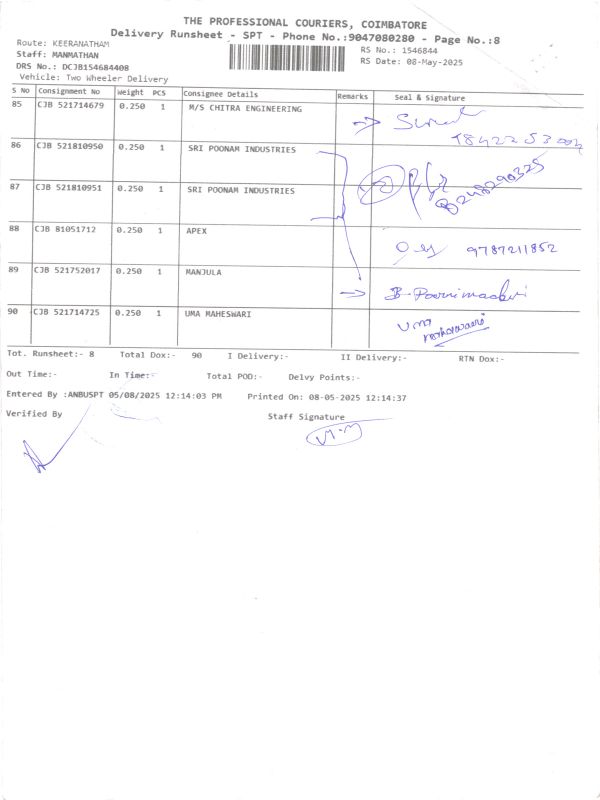 THE PROFESSIONAL COURIERS, COIMBATORE
Delivery Runsheet - SPT - Phone No.:9047080280 - Page No.:8
Route: KEERANATHAM
RS No.: 1546844
Staff: MANMATHAN
RS Date: 08-May-2025
DRS No.: DCJB154684408
Vehicle: Two Wheeler Delivery
S No Consignment No Weight PCS Consignee Details Remarks Seal & Signature
85 CJB 521714679 0.250 1 M/S CHITRA ENGINEERING
86 CJB 521810950 0.250 1 SRI POONAM INDUSTRIES
87 CJB 521810951 0.250 1 SRI POONAM INDUSTRIES
88 CJB 81051712 0.250 1 APEX
9787211852
89 CJB 521752017 0.250 1 MANJULA
90 CJB 521714725 0.250 1 UMA MAHESWARI
Uma
Tot. Runsheet:- 8 Total Dox:- 90 I Delivery:- II Delivery:- RTN Dox:-
Out Time:- In Time:- Total POD:- Delvy Points:-
Entered By :ANBUSPT 05/08/2025 12:14:03 PM Printed On: 08-05-2025 12:14:37
Verified By Staff Signature